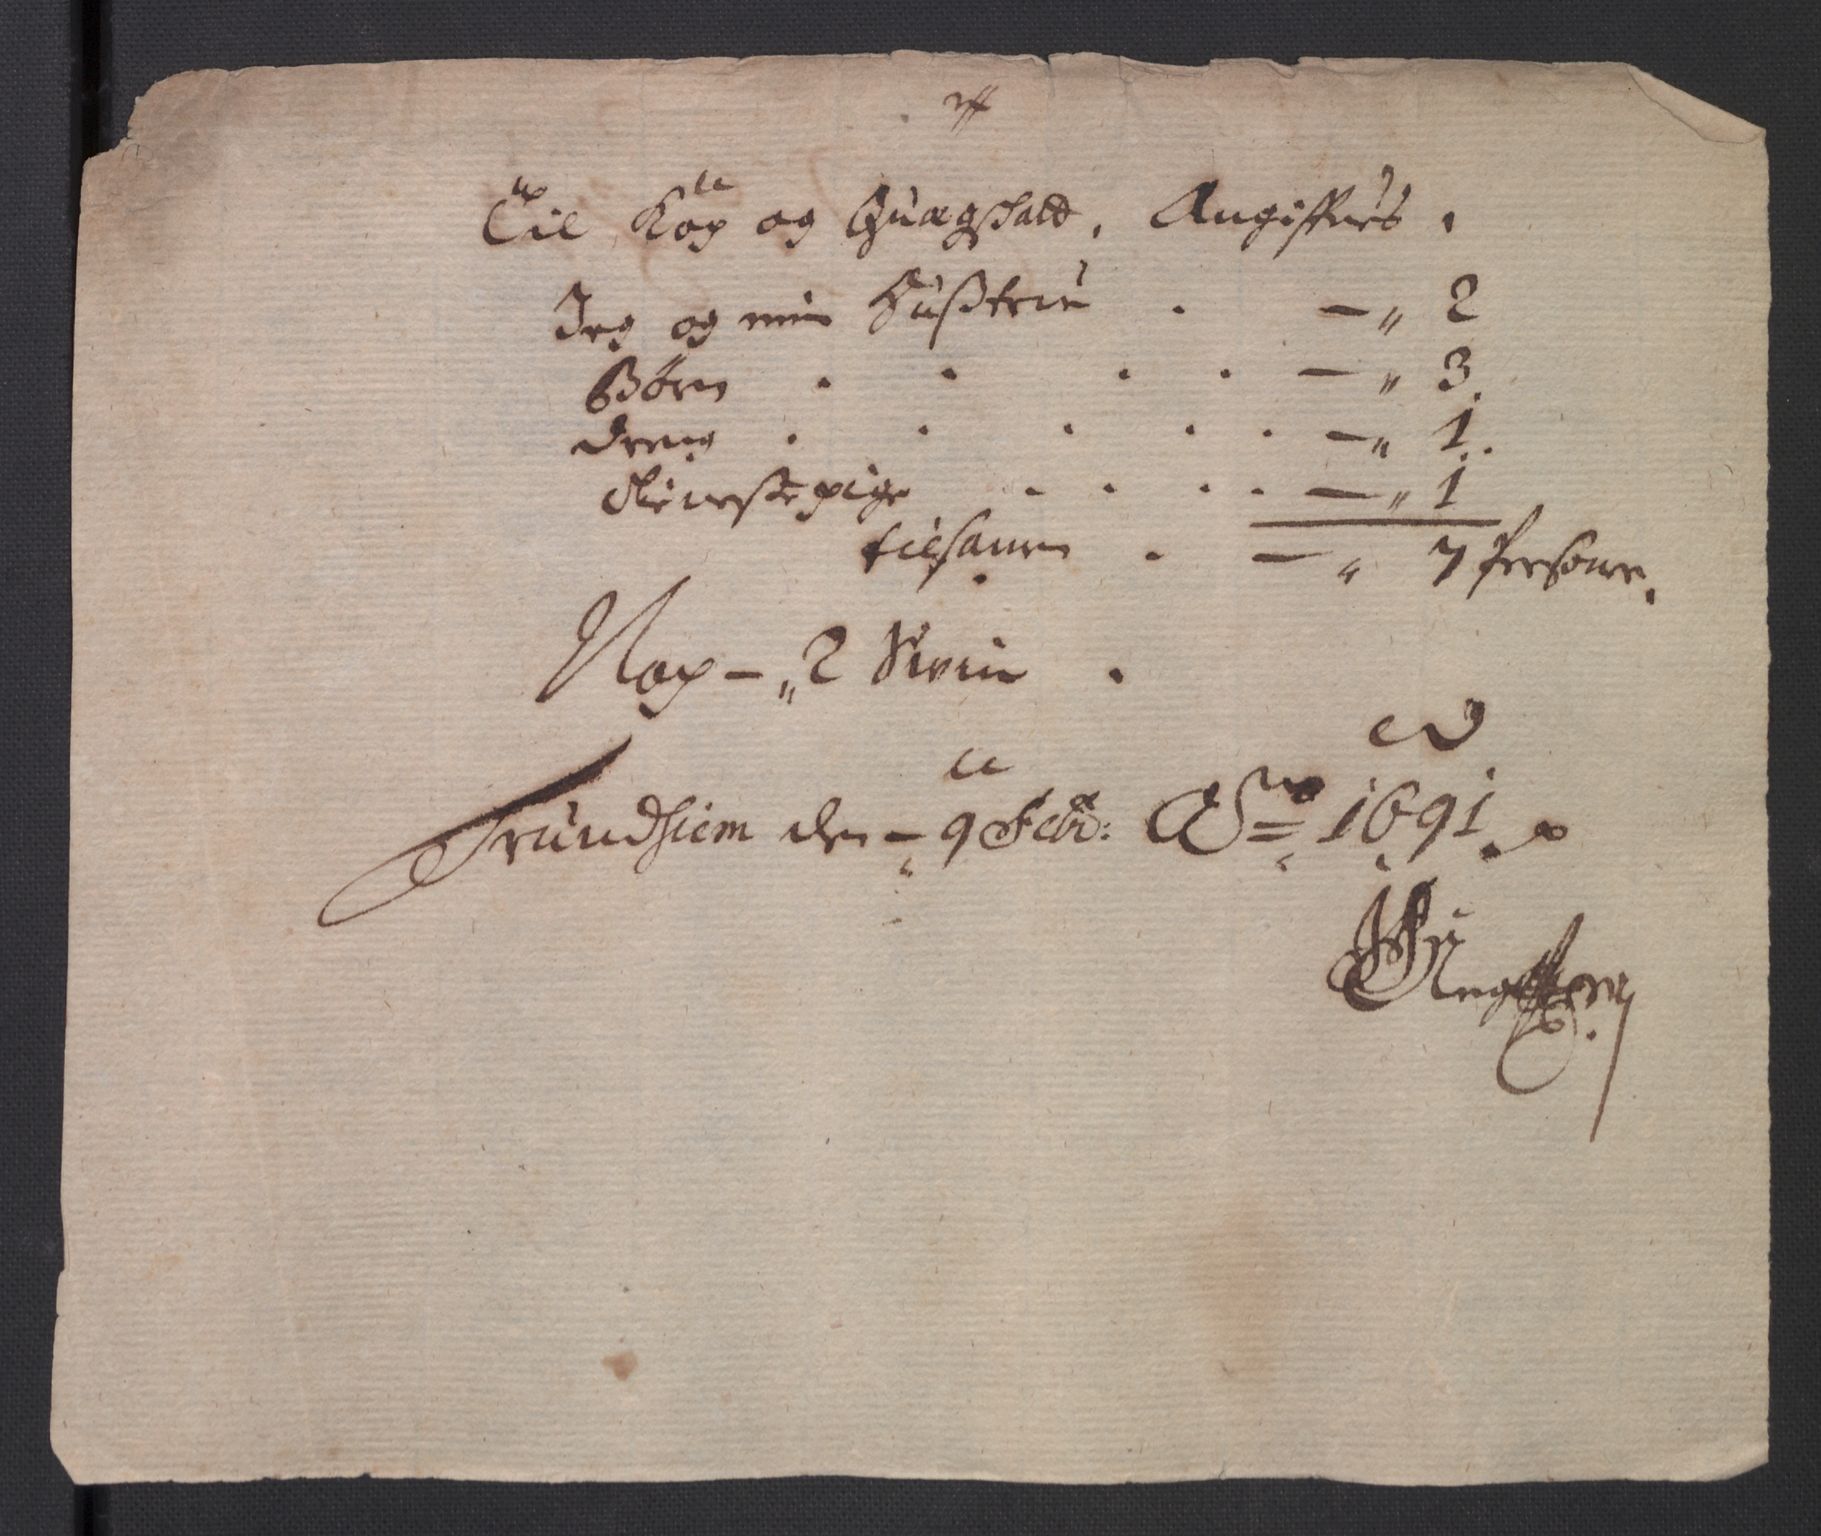 Til Kop og Quægschatt, Angiffues,
Jeg og min Hußtrue . — „ 2
Børn . . . . — „ 3.
Dreng . . . . . — „ 1.
tienestepige . . . . — „ 1
tilsamen . — „ 7 Persone,
Nox — „ 2 Svein .
Trundhiem den — 9 Febr: Ao = 1691.